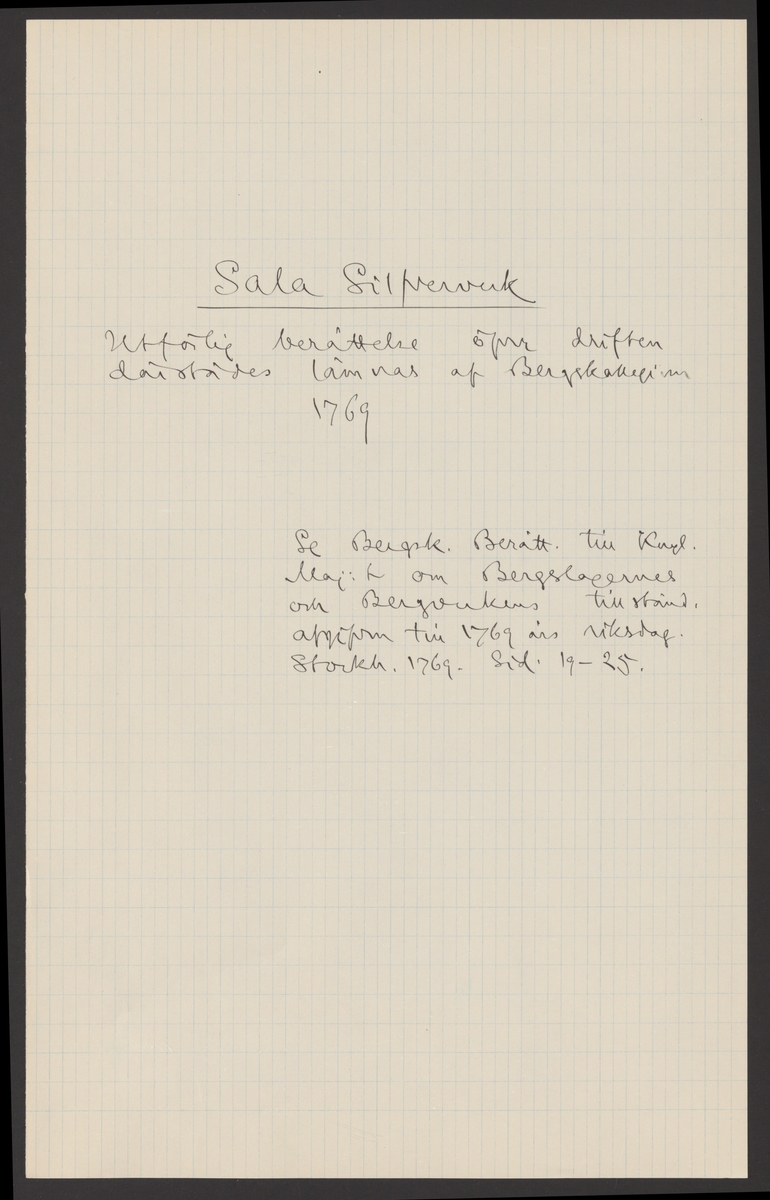 Sala Silfververk
Utförlig berättelse öfver driften
därstädes lämnas af Bergskollegium
1769
Se Bergsk. Berätt. till Kngl.
Maj:t om Bergslagernes
och Bergverkens tillstånd.
afgifven till 1769 års riksdag.
Stockh. 1769. Sid. 19-25.